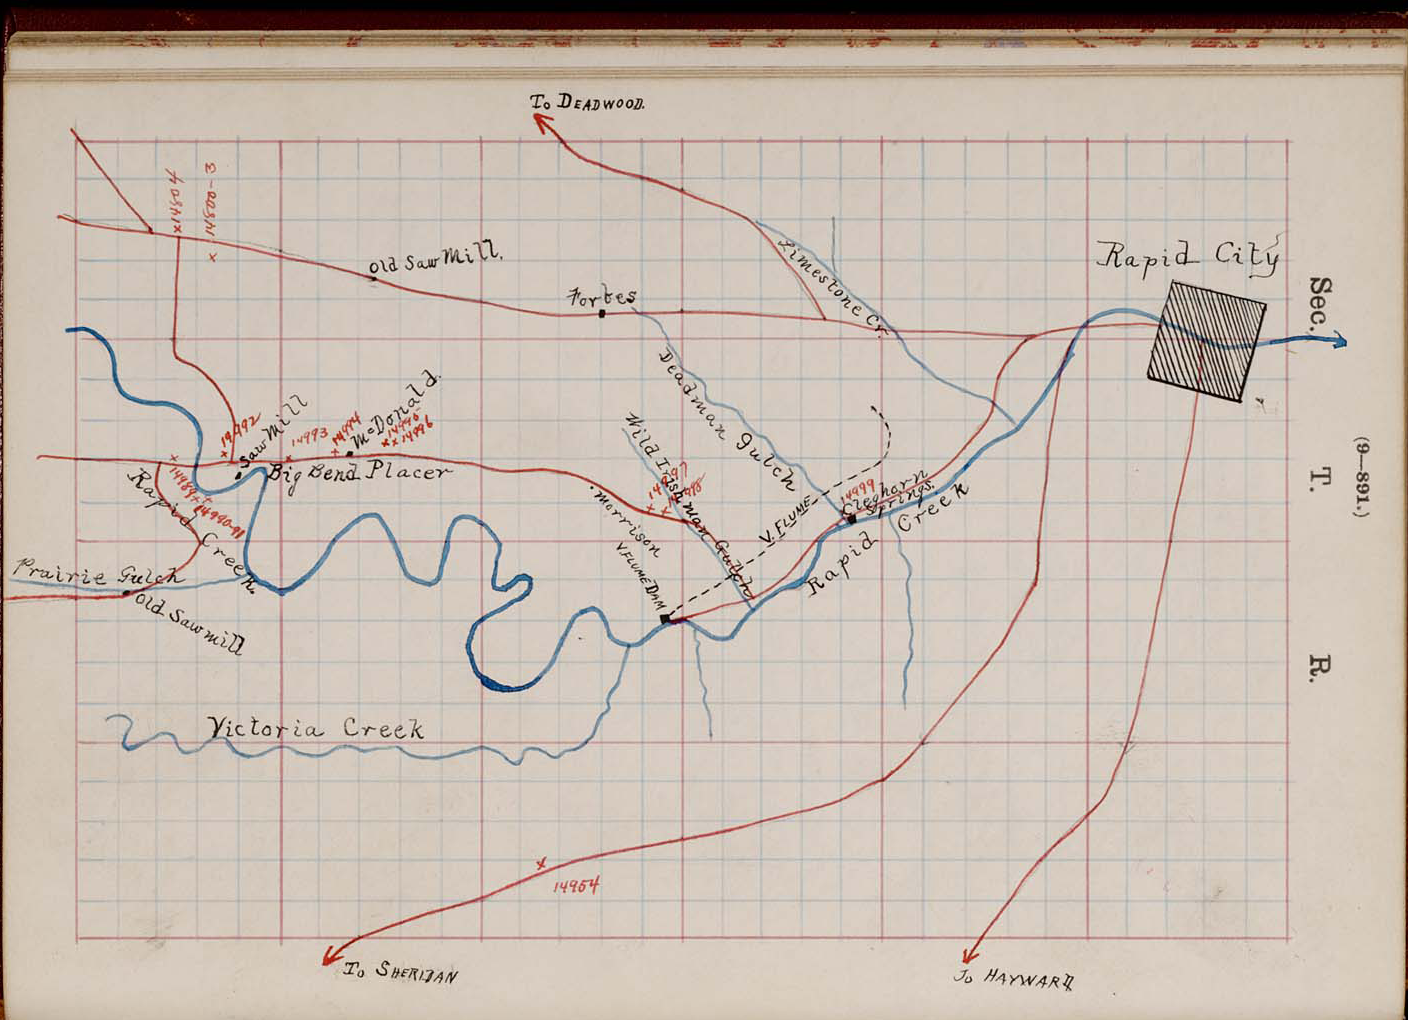 To DEADWOOD.
14804
14800-3
Old Saw Mill.
Forbes
Limestone Cr.
Rapid City
Sec.
T.
R.
(9—891.)
Deadman gulch
McDonald.
Saw Mill
14992
14993
14994
14995
14996
Big Bend Placer
Wild Irishman Gulch
14998
Morrison
V FLUME DAM
V. FLUME
14999
Cleghorn
Springs.
Rapid Creek
Rapid Creek.
14990-91
Prairie Gulch
Old Sawmill
Victoria Creek
14954
To SHERIDAN
To HAYWARD.